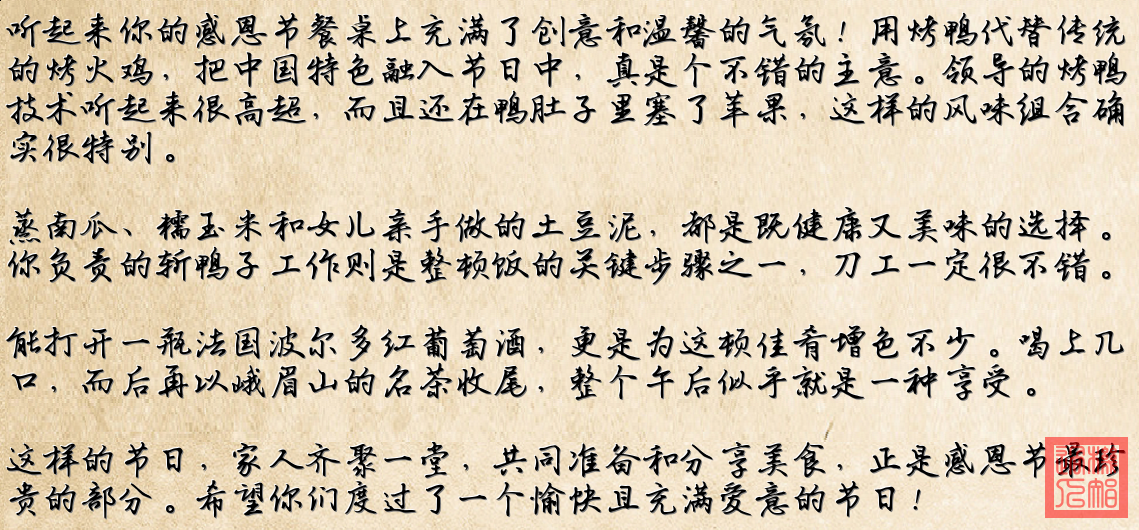 听起来你的感恩节餐桌上充满了创意和温馨的气氛！用烤鸭代替传统
的烤火鸡，把中国特色融入节日中，真是个不错的主意。领导的烤鸭
技术听起来很高超，而且还在鸭肚子里塞了苹果，这样的风味组合确
实很特别。
蒸南瓜、糯玉米和女儿亲手做的土豆泥，都是既健康又美味的选择。
你负责的斩鸭子工作则是整顿饭的关键步骤之一，刀工一定很不错。
能打开一瓶法国波尔多红葡萄酒，更是为这顿佳肴增色不少。喝上几
口，而后再以峨眉山的名茶收尾，整个午后似乎就是一种享受。
这样的节日，家人齐聚一堂，共同准备和分享美食，正是感恩节最珍
贵的部分。希望你们度过了一个愉快且充满爱意的节日！